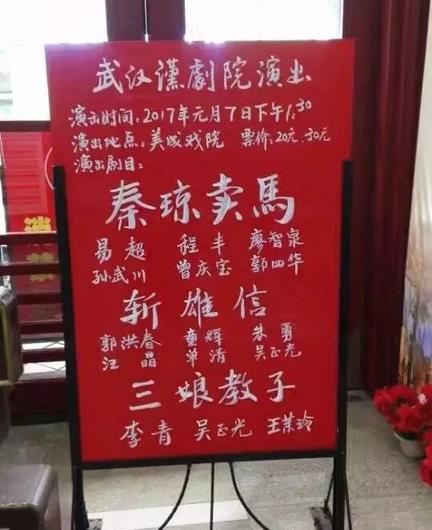 武汉汉劇院演出
演出时间:2017年元月7日下午1:30
演出地点:美成戏院 票价:20元、30元
演出剧目:
秦琼卖馬
易超 程丰 廖智泉
孙武川 曾庆宝 郭四华
斩雄信
郭洪春 童辉 朱勇
汪晶 单清 吴正光
三娘教子
李青 吴正光 王荣玲
消